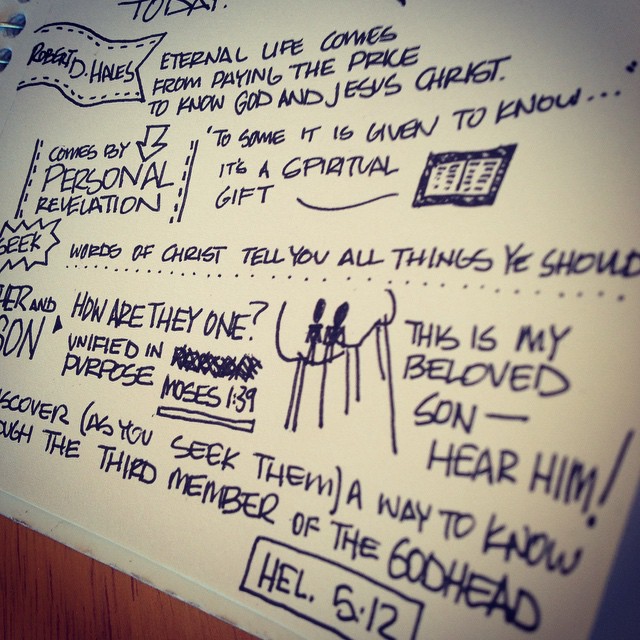 TODAY.
ROBERT D. HALES
ETERNAL LIFE COMES
FROM PAYING THE PRICE
TO KNOW GOD AND JESUS CHRIST.
COMES BY
PERSONAL
REVELATION
"TO SOME IT IS GIVEN TO KNOW..."
IT'S A SPIRITUAL
GIFT
SEEK
WORDS OF CHRIST TELL YOU ALL THINGS YE SHOULD
HER AND
SON
HOW ARE THEY ONE?
UNIFIED IN
PURPOSE
MOSES 1:39
THIS IS MY
BELOVED
SON—
HEAR HIM!
SCOVER (AS YOU SEEK THEM) A WAY TO KNOW
OUGH THE THIRD MEMBER OF THE GODHEAD
HEL. 5:12